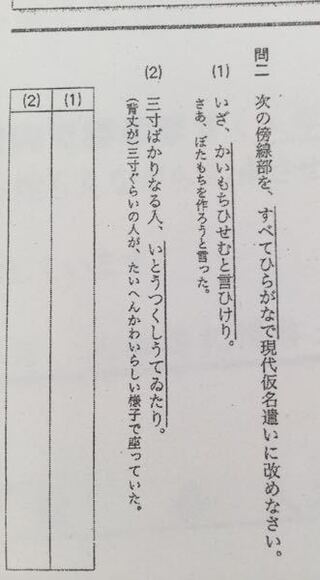 問二　次の傍線部を、すべてひらがなで現代仮名遣いに改めなさい。
(1)　いざ、かいもちひせむと言ひけり。
さあ、ぼたもちを作ろうと言った。
(2)　三寸ばかりなる人、いとうつくしうてゐたり。
(背丈が)三寸ぐらいの人が、たいへんかわいらしい様子で座っていた。
(1)
(2)